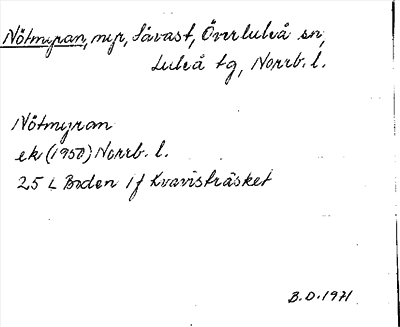 Nötmyran, myr, Sävast, Överluleå sn,
Luleå tg, Norrb. l.
Nötmyran
ek (1950) Norrb. l.
25 L Boden 1f Kvavisträsket
B.D. 1971